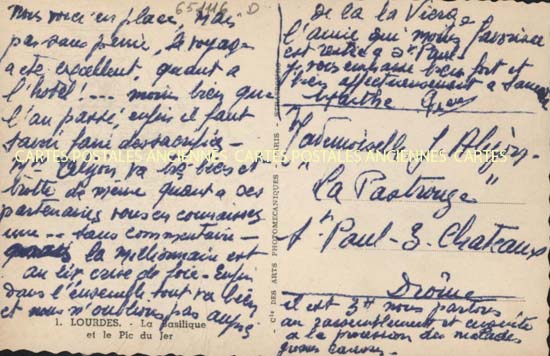 65116 D
Nous voici en place, mais
pas sans peine, le voyage
a été excellent, quant à
l'hôtel !... moins bien que
l'an passé enfin il faut
savoir faire
va très bien et
de même quant à ses
partenaires vous en connaissez
une -- sans commentaire -
la millionnaire est
au lit crise de foie - Enfin
dans l'ensemble tout va bien
et nous n'oublions pas auprès
1. LOURDES. - La Basilique
et le Pic du Jer
de la Vierge
l'amie qui nous
est restée à St Paul
je vous embrasse bien fort et
bien affectueusement à
Marthe
Mademoiselle
"La Pastourge"
St Paul-3-Châteaux
Drôme
il est 3h nous partons
au rassemblement et ensuite
à la procession des malades
CARTES POSTALES ANCIENNES CARTES POSTALES ANCIENNES CARTES
Cie DES ARTS PHOTOMÉCANIQUES - PARIS -